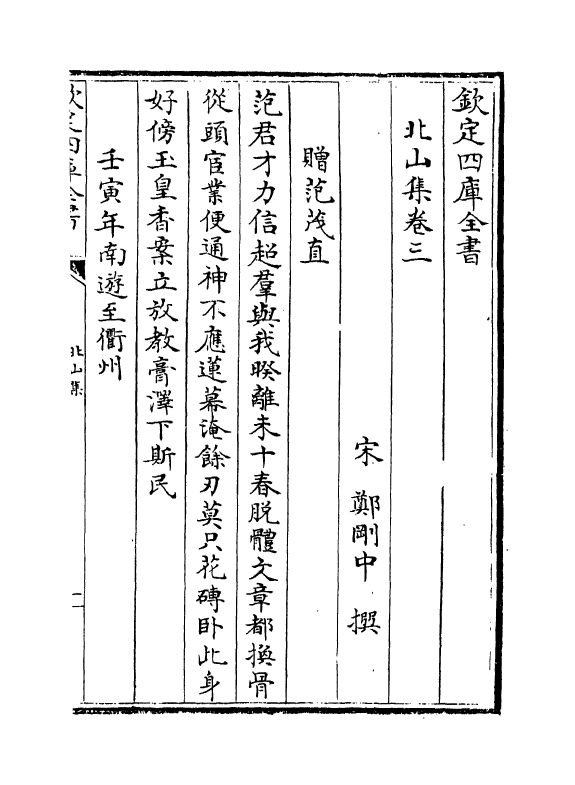 欽定四庫全書
北山集卷三
宋 鄭剛中 撰
贈范茂直
范君才力信超羣與我暌離未十春脱體文章都換骨
從頭官業便通神不應蓮幕淹餘刃莫只花磚卧此身
好傍玉皇香案立放教膏澤下斯民
壬寅年南遊至衢州
欽定四庫全書
北山集
一